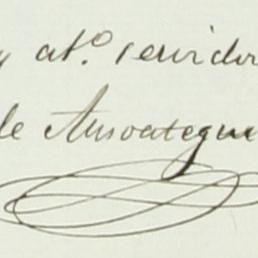 y at.º servidor
de Ansoategui